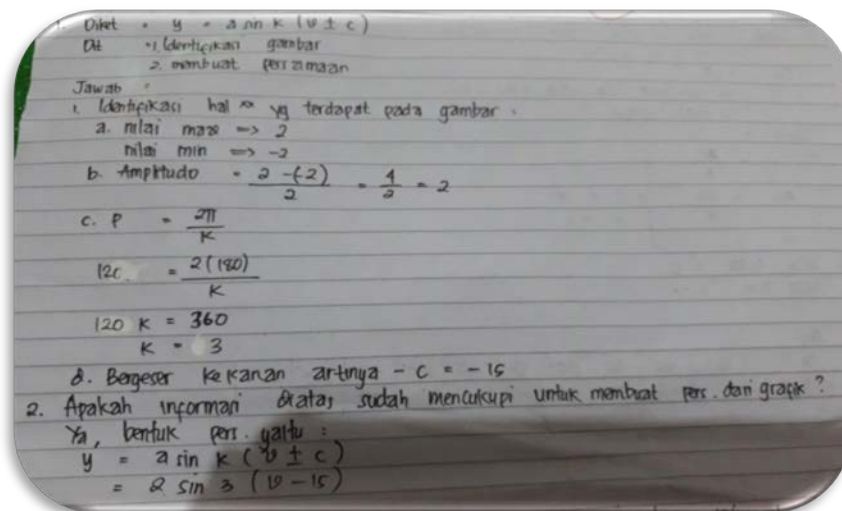 1. Diket : y = a sin k (θ ± c)
Dit : 1. Identifikasi gambar
2. membuat persamaan
Jawab :
1. Identifikasi hal² yg terdapat pada gambar :
a. nilai max => 2
nilai min => -2
b. Amplitudo = 2 -(-2) / 2 = 4 / 2 = 2
c. P = 2π / K
120 = 2(180) / K
120 K = 360
K = 3
d. Bergeser ke kanan artinya - c = - 15
2. Apakah informasi diatas sudah mencukupi untuk membuat pers. dari grafik ?
Ya, bentuk pers. yaitu :
y = a sin k (θ ± c)
= 2 sin 3 (θ - 15)